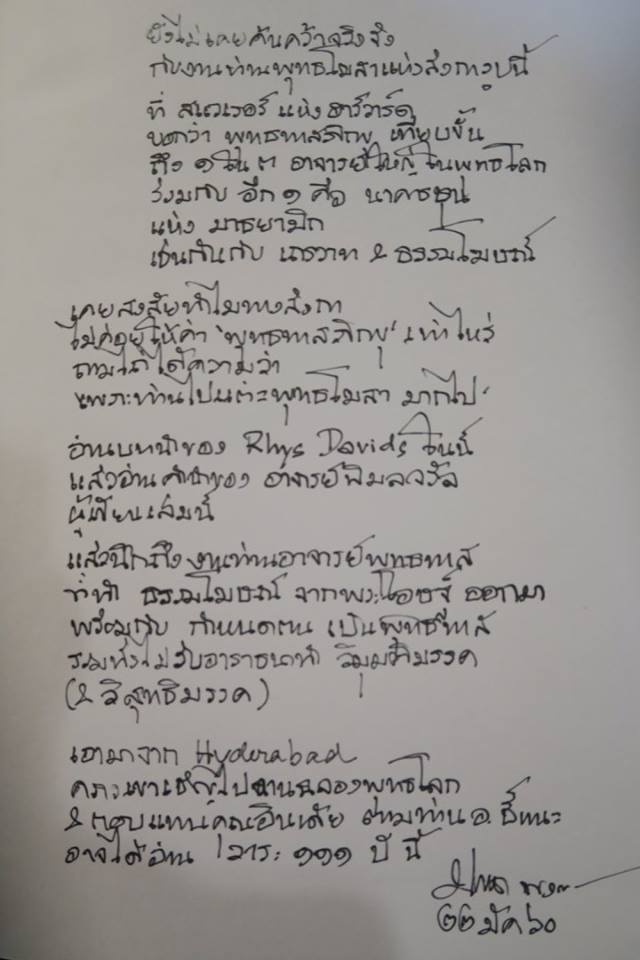 ยังไม่เคยค้นคว้าจริงจัง
กับงานท่านพุทธโฆสาแห่งลังการูปนี้
ที่ สแวเรอร์ แห่ง ฮาร์วาร์ด
บอกว่า พุทธทาสภิกขุ เทียบชั้น
ถึง ๑ ใน ๓ อาจารย์ใหญ่ ในพุทธโลก
ร่วมกับ อีก ๑ คือ นาคารชุน
แห่ง มาธยามิก
เช่นกันกับ เถรวาท & ธรรมโฆษณ์
เคยสงสัยทำไมทางลังกา
ไม่ค่อยให้ค่า 'พุทธทาสภิกขุ' เท่าไหร่
ถามไถ่ได้ความว่า
'เพราะท่านไปแตะพุทธโฆสา มากไป'
อ่านบทนำของ Rhys Davids ในนี้
แล้วอ่านคำนำของ อาจารย์พิมลจรัล
ผู้เขียนเล่มนี้
แล้วนึกถึงงานท่านอาจารย์พุทธทาส
ที่ทำ ธรรมโฆษณ์ จากพระโอษฐ์ ออกมา
พร้อมกับ กำหนดตน เป็นพุทธทาส
รวมทั้งไม่รับอาราธนาทำ วิมุตติมรรค
(& วิสุทธิมรรค)
เอามาจาก Hyderabad
คราวเขาเชิญไปงานฉลองพุทธโลก
& ตอบแทนคุณอินเดีย ตามท่าน อ. ชี้แนะ
อาจได้อ่าน วาระ ๑๑๑ ปี นี้
๒๒ มีค ๖๐